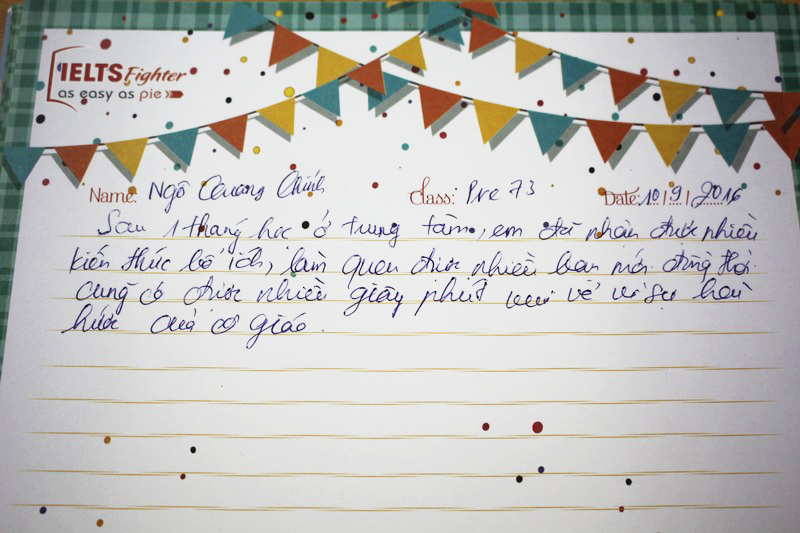 IELTS Fighter
as easy as pie
Name: Ngô Quang Chính Class: Pre 73 Date: 10/9/2016
Sau 1 tháng học ở trung tâm, em đã nhận được nhiều
kiến thức bổ ích, làm quen được nhiều bạn mới. đồng thời
cũng có được nhiều giây phút vui vẻ vì sự hài
hước của cô giáo.